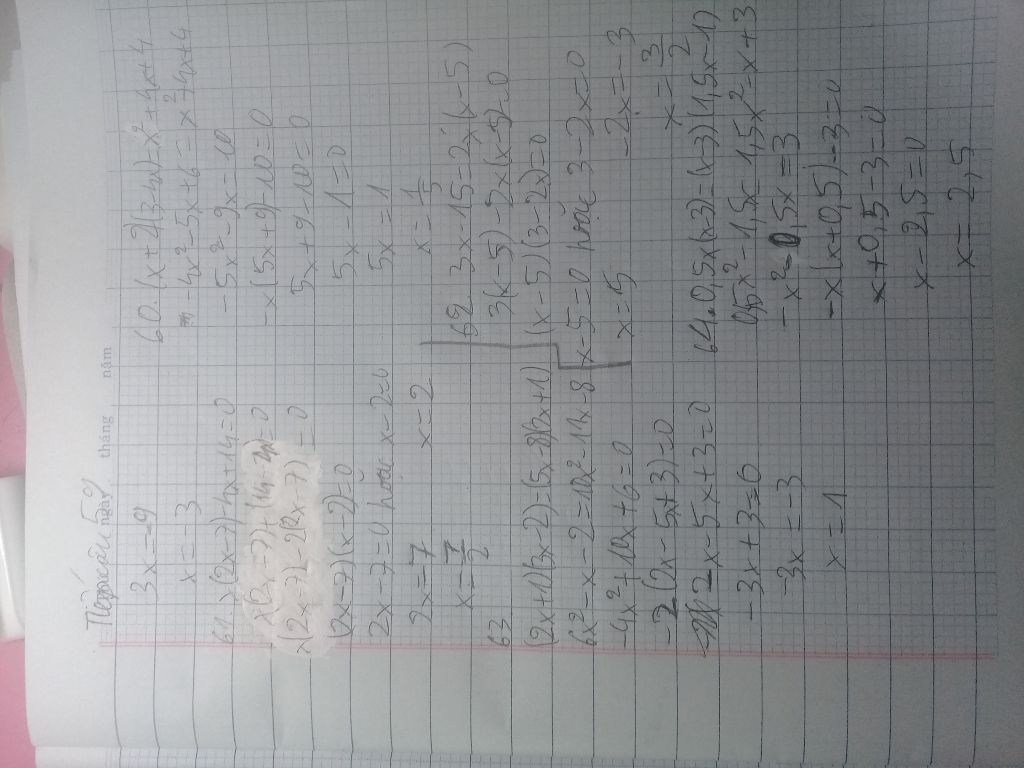 ngày tháng năm
3x = -9
x = -3
61 x(2x-7)-4x+14=0
x(2x-7)-2(2x-7)=0
(2x-7)(x-2)=0
2x-7=0 hoặc x-2=0
2x=7 x=2
x=7/2
63
(2x+1)(3x-2)=(5x-8)(2x+1)
6x²-x-2=10x²-11x-8
-4x²+10x+6=0
-2(2x-5x+3)=0
2x-5x+3=0
-3x+3=0
-3x=-3
x=1
60.(x+2)(3-4x)=x²+4x+4
-4x²-5x+6=x²+4x+4
-5x²-9x=10
-x(5x+9)-10=0
5x+9-10=0
5x-1=0
5x=1
x=1/5
62 3x-15=2x(x-5)
3(x-5)-2x(x-5)=0
(x-5)(3-2x)=0
x-5=0 hoặc 3-2x=0
x=5 -2x=-3
x=3/2
64. 0,5x(x-3)=(x-3)(1,5x-1)
0,5x²-1,5x=1,5x²-x+3
-x²-0,5x=3
-x(x+0,5)-3=0
x+0,5-3=0
x-2,5=0
x=2,5